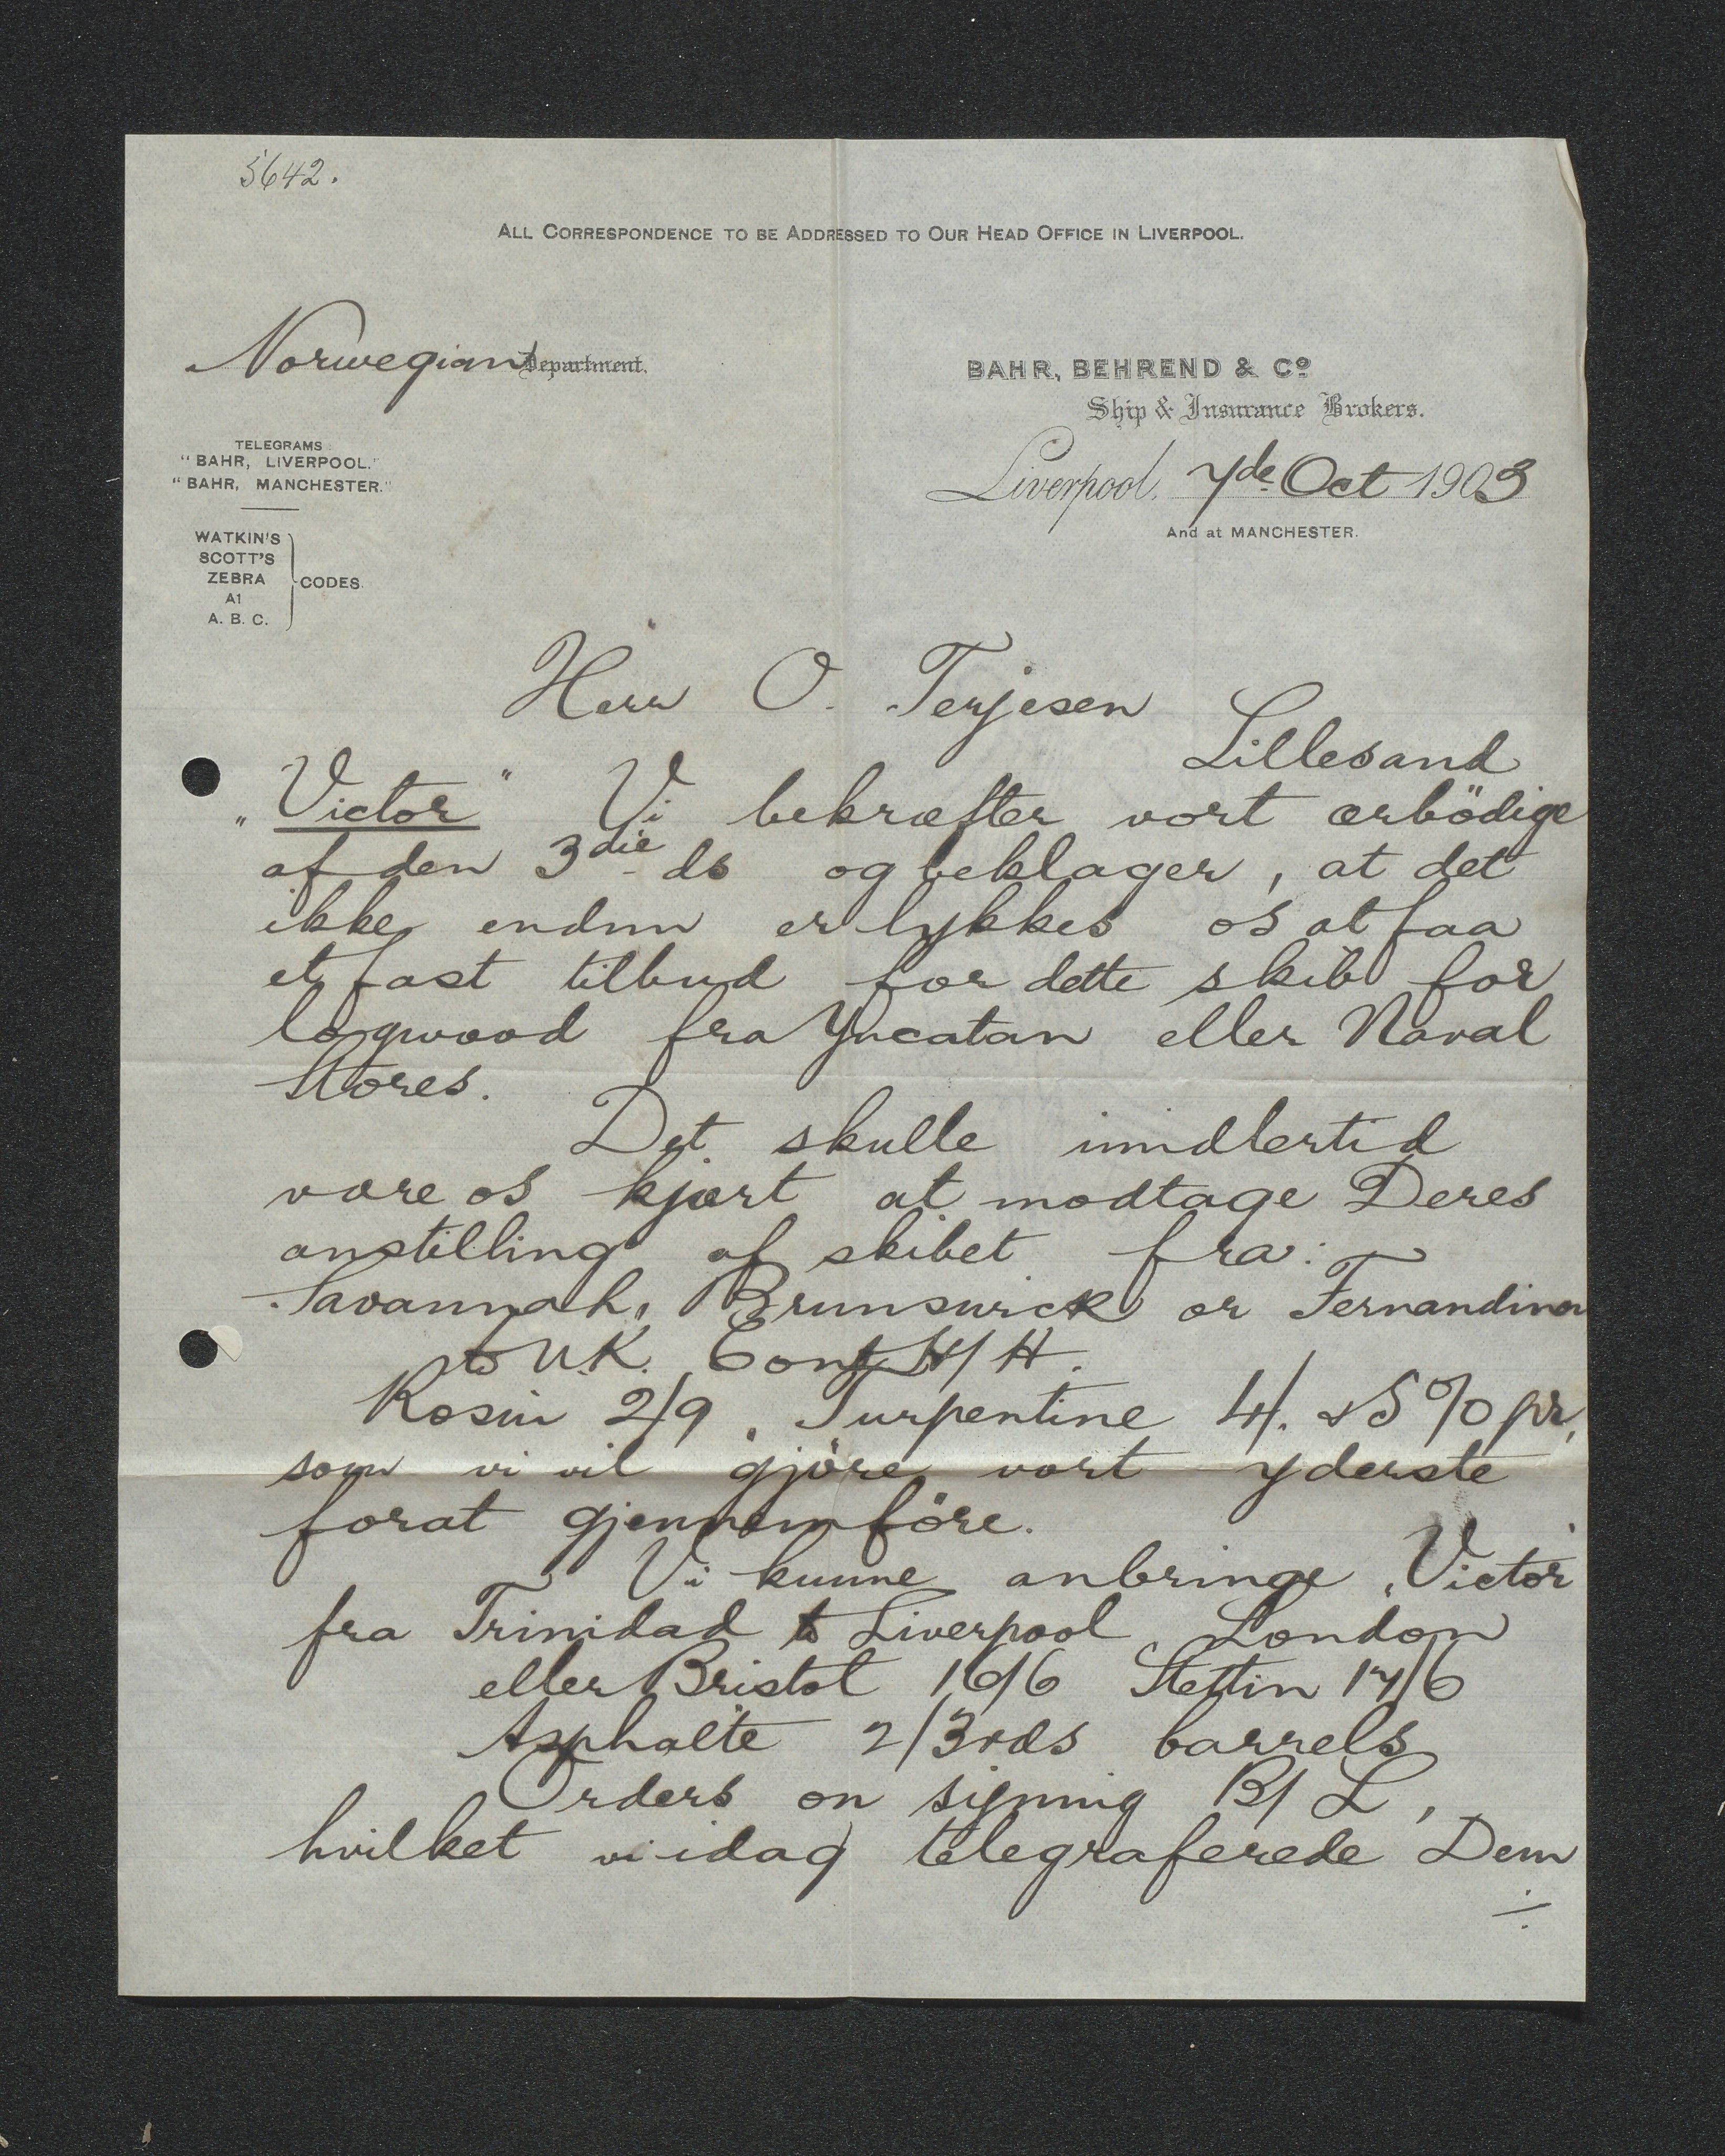 5642.
All Correspondence to be Addressed to Our Head Office in Liverpool.
Norwegian Department.
BAHR, BEHREND & Cº
Ship & Insurance Brokers.
TELEGRAMS
"BAHR, LIVERPOOL."
"BAHR, MANCHESTER."
Liverpool, 7de Oct 1903
And at MANCHESTER.
WATKIN'S
SCOTT'S
ZEBRA
A1
A. B. C.
CODES.
Herr O. Terjesen
Lillesand
„Victor" Vi bekræfter vort ærbödige
af den 3die ds og beklager, at det
ikke endnu er lykkes os at faa
et fast tilbud for dette skib for
logwood fra Yucatan eller Naval
Stores.
Det skulle imidlertid
være os kjært at modtage Deres
anstilling af skibet fra:
Savannah, Brunswick or Fernandina
to U.K. Cont H/H.
Rosin 2/9, Turpentine 4/. & 5% pr,
som vi vil gjöre vort yderste
forat gjennemföre.
Vi kunne anbringe „Victor"
fra Trinidad to Liverpool, London
eller Bristol 16/6 Stettin 17/6
Asphalte 2/3rds barrels
Orders on signing B/L,
hvilket vi idag telegraferede Dem
./.